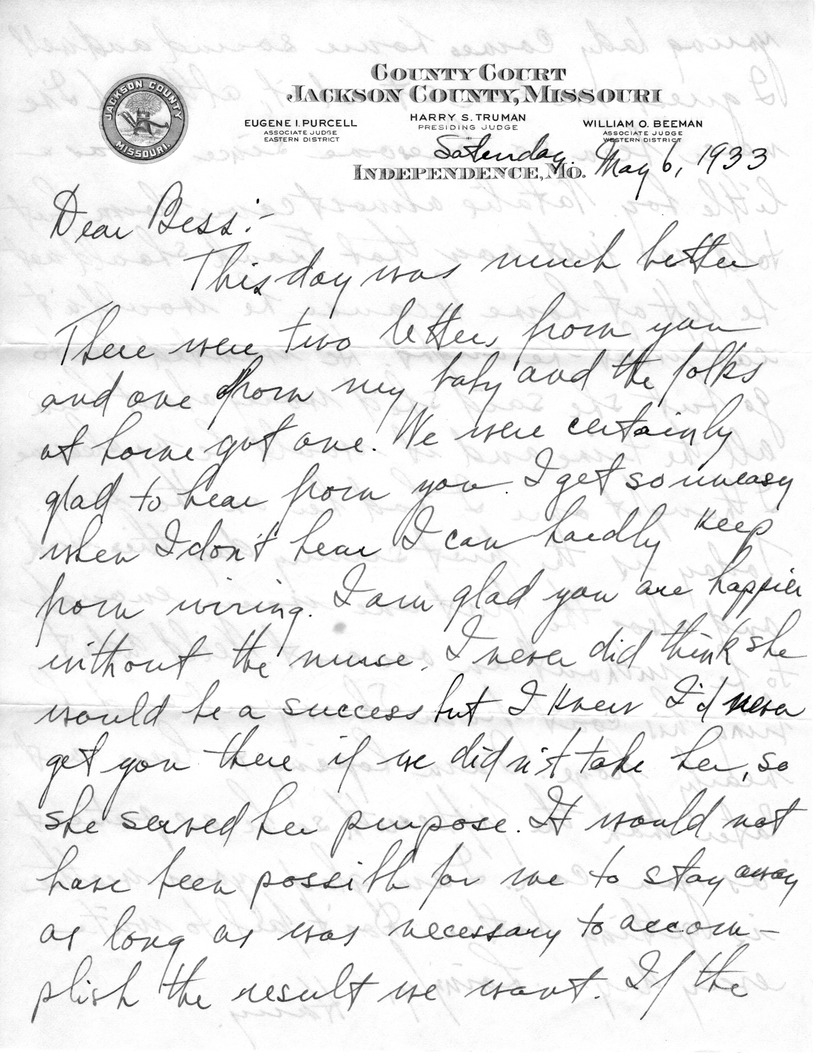 COUNTY COURT
JACKSON COUNTY, MISSOURI
JACKSON COUNTY
MISSOURI
EUGENE I. PURCELL
ASSOCIATE JUDGE
EASTERN DISTRICT
HARRY S. TRUMAN
PRESIDING JUDGE
WILLIAM O. BEEMAN
ASSOCIATE JUDGE
WESTERN DISTRICT
INDEPENDENCE, MO.
Saturday. May 6, 1933
Dear Bess:-
This day was much better
There were two letters from you
and one from my baby and the folks
at home got one. We were certainly
glad to hear from you. I get so uneasy
when I don't hear I can hardly keep
from wiring. I am glad you are happier
without the nurse. I never did think she
would be a success but I knew I'd never
get you there if we didn't take her, so
she served her purpose. It would not
have been possible for me to stay away
as long as was necessary to accom-
plish the result we want. If the